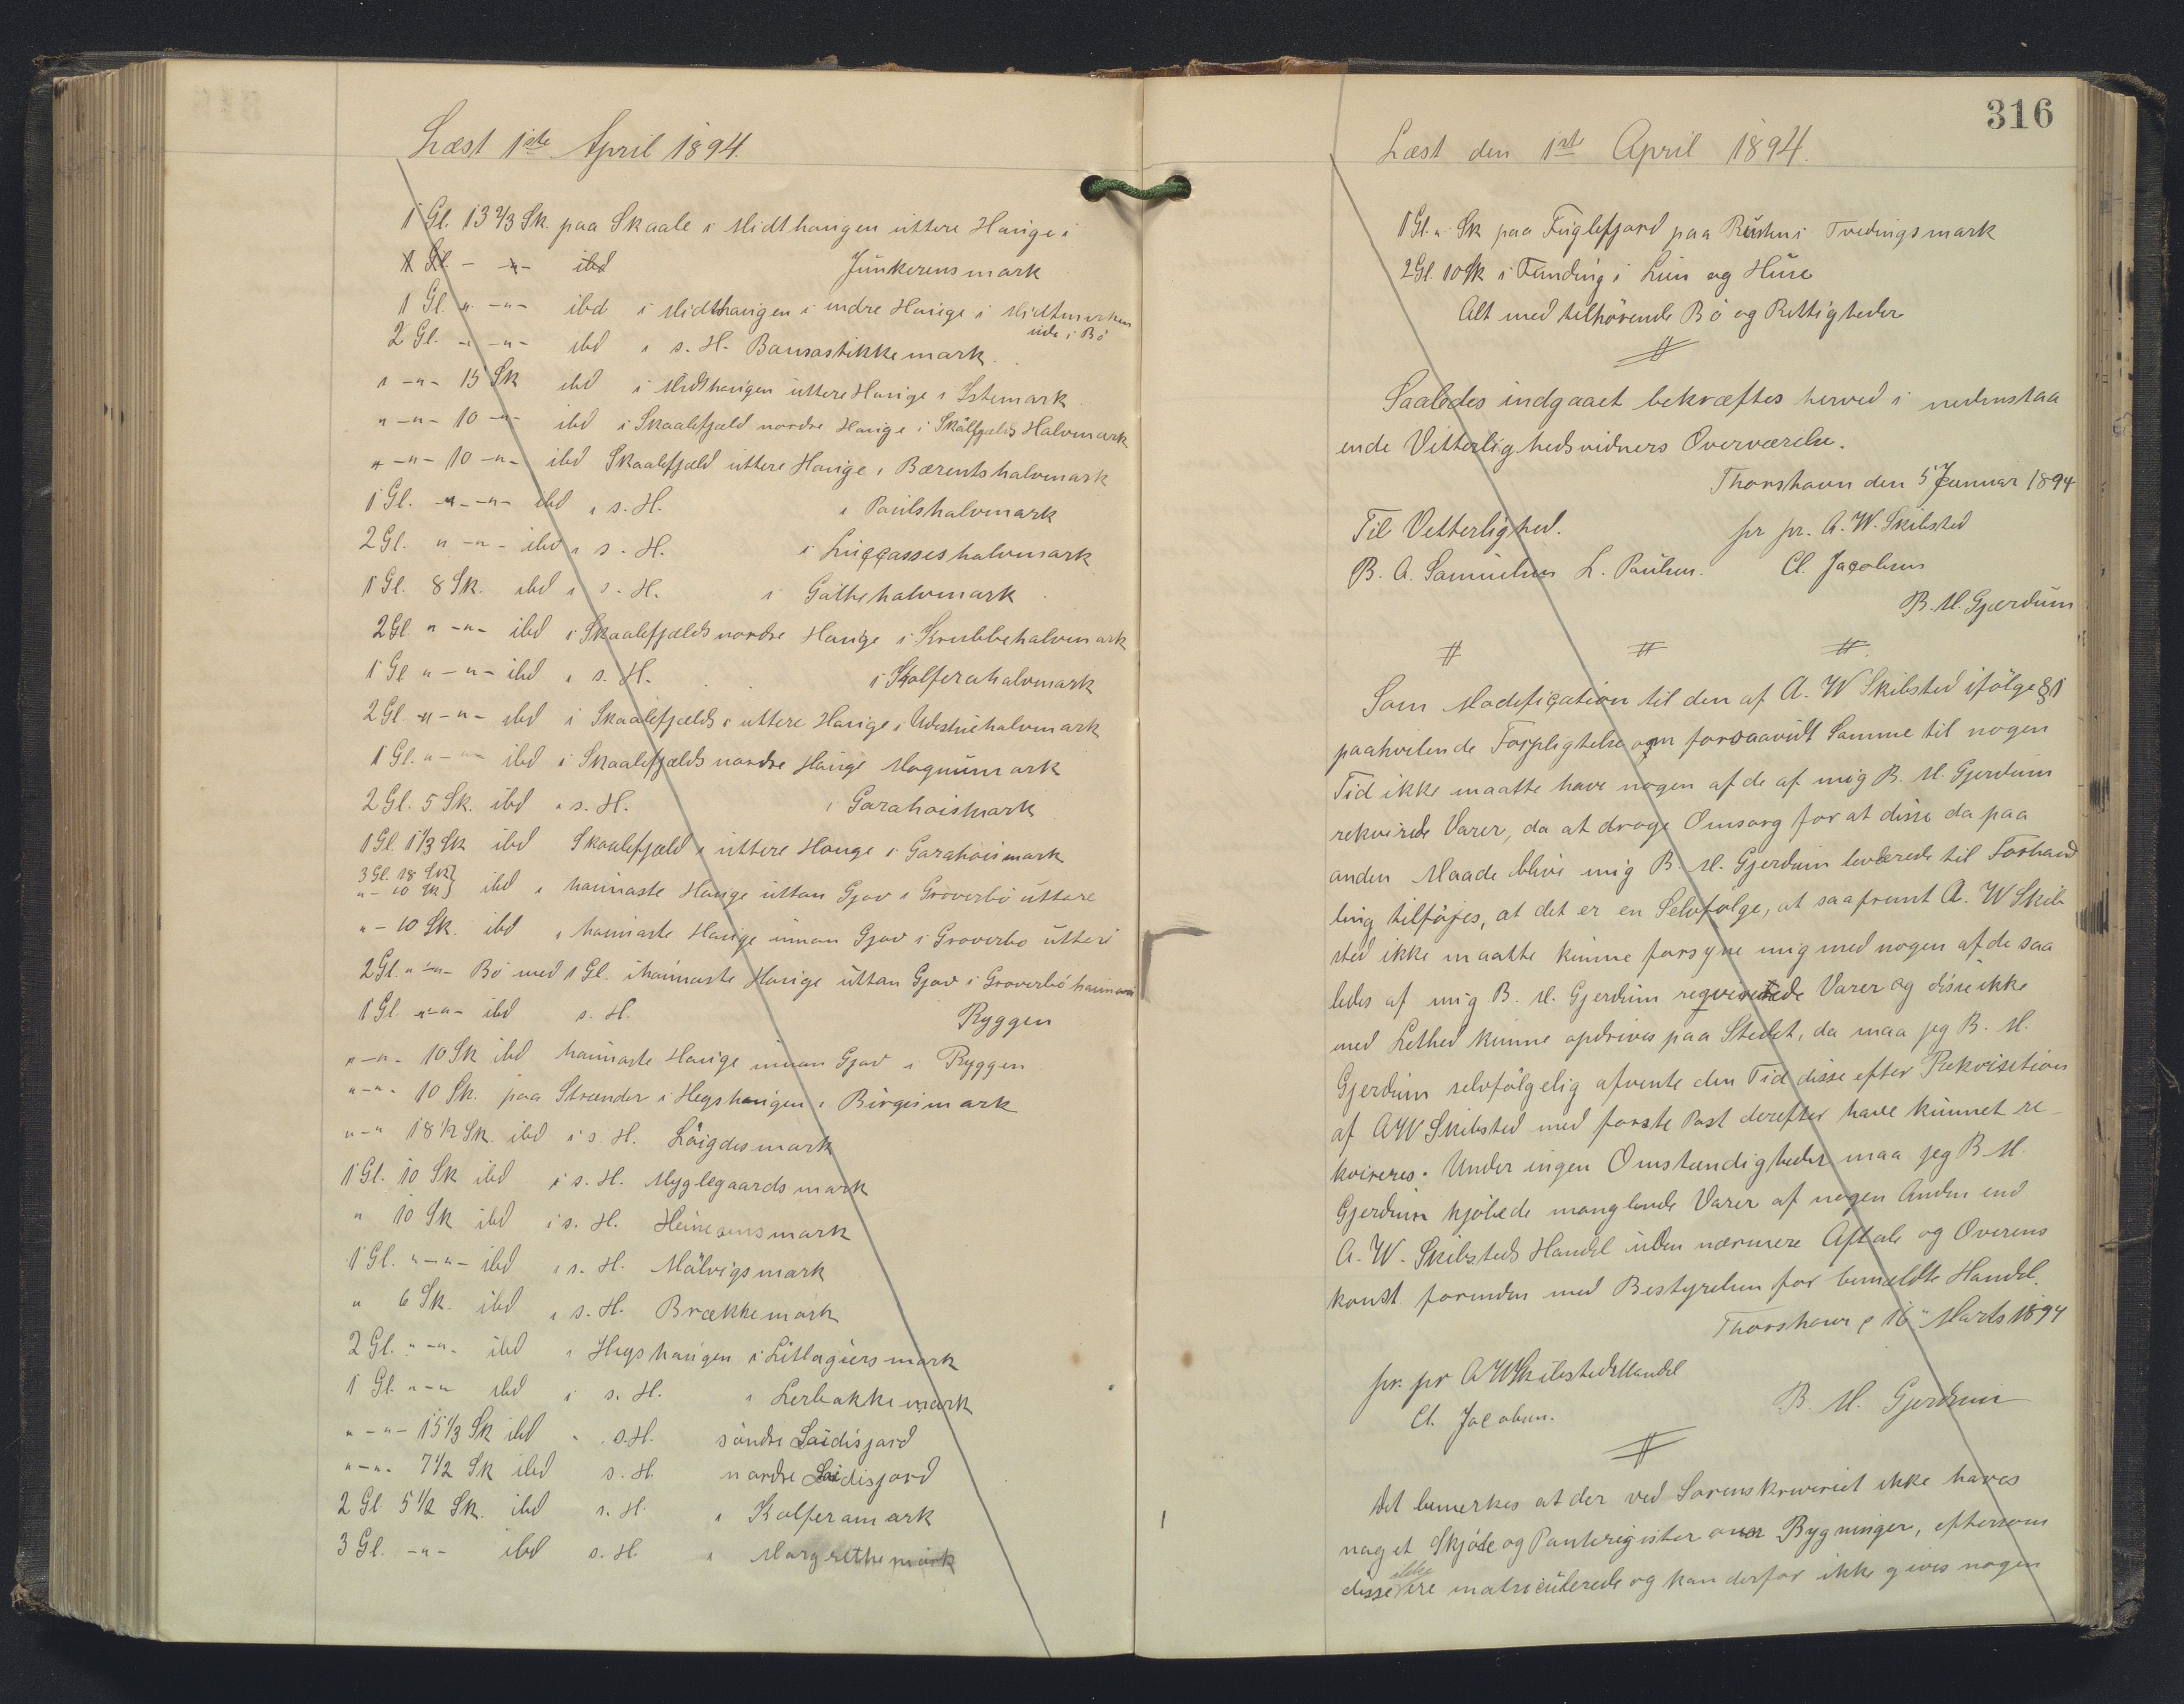 Læst 1ste April 1894.
1 Gl. 13 2/3 Sk. paa Skaale i Midthaugen uttere Hauge i
1 Gl - " - ibd Junkerensmark
1 Gl " - " - ibd i Midthaugen i indre Hauge i Midtmarken
ude i Bø
2 Gl. " - " - ibd i s. H. Bansastikkemark
" - " - 15 Sk ibd i Midthaugen uttere Hauge i Istemark
" - " - 10 - " - ibd i Skaalefjæld nordre Hauge i Skålfjælds Halvmark
" - " - 10 - " - ibd Skaalefjæld uttere Hauge i Bærentshalvmark
1 Gl. - " - " - ibd i s. H. i Poulshalvmark
2 Gl. " - " - ibd i s. H. i Luccasseshalvmark
1 Gl. 8 Sk. ibd i s. H. i Gåttehalvmark
2 Gl. " - " - ibd i Skaalefjælds nordre Hauge i Krubbehalvmark
1 Gl " - " - ibd i s. H. i Kolferahalvmark
2 Gl. " - " - ibd i Skaalefjælds i uttere Hauge i Udistuehalvmark
1 Gl. " - " - ibd i Skaalefjælds nordre Hauge Magnumark
2 Gl. 5 Sk. ibd i s. H. i Garahoismark
1 Gl. 1 1/3 Sk ibd Skaalefjæld i uttere Hauge i Garahoismark
3 Gl. 18 Sk
" - 10 Sk } ibd i haimaste Hauge uttan Gjov i Groverbö uttere
" - 10 Sk. ibd i haimaste Hauge innan Gjov i Groverbö uttere
2 Gl. " - " - Bö med 1 Gl. i haimaste Hauge uttan Gjov i Groverbö haimare
1 Gl. " - " - ibd s. H. Ryggen
" - " - 10 Sk ibd haimaste Hauge innan Gjov i Ryggen
" - " - 10 Sk. paa Strænder i Hegshaugen i Birgismark
" - " 18 1/2 Sk. ibd i s. H. Löigdismark
1 Gl. 10 Sk ibd i s. H. Myglegaardsmark
" 10 Sk ibd i s. H. Heinesensmark
1 Gl. " - " - ibd i s. H. Målvigsmark
" 6 Sk. ibd i s. H. Brækkemark
2 Gl. " - " - ibd i Hegshaugen i Litlagiersmark
1 Gl. " - " ibd i s. H. i Lerbakkemark
" - " - 15 1/3 Sk ibd " s. H. söndre Laidisjord
" - " - 7 1/2 Sk ibd s. H. nordre Laidisjord
2 Gl. 5 1/2 Sk. ibd s. H. i Kolferamark
3 Gl. - " - ibd s. H. i Margrethemark
316
Læst den 1ste April 1894.
1 Gl. " Sk paa Fuglefjord paa Rusten i Tvedingsmark
2 Gl. 10 Sk i Funding i Lun og Huse
Alt med tilhörende Bö og Rettigheder
Saaledes indgaaet bekræftes herved i nedenstaa
ende Vitterlighedsvidners Overværelse.
Thorshavn den 5 Januar 1894
Til Vitterlighed. pr pr. A. W. Skibsted
B. A. Samuelsen L. Paulsen. Cl. Jacobsen
B. M. Gjerdum
Som Modification til den af A. W Skibsted ifölge § 1
paahvilende Forpligtelse om forsaavidt Samme til nogen
Tid ikke maatte have nogen af de af mig B. M. Gjerdum
rekvirede Varer, da at drage Omsorg for at disse da paa
anden Maade blive mig B. M. Gjerdum leverede til Forhand
ling tilföjes, at det er en Selvfölge, at saafremt A. W Skib
sted ikke maatte kunne forsyne mig med nogen af de saa
ledes af mig B. M. Gjerdum reqvirerede Varer og disse ikke
med Lethed kunne opdrives paa Stedet, da maa jeg B. M.
Gjerdum selvfölgelig afvente den Tid disse efter Rekvisition
af A W Skibsted med förste Post derefter have kunnet re-
kvireres. Under ingen Omstændigheder maa jeg B. M.
Gjerdum kjöbe de manglende Varer af nogen Anden end
A. W. Skibsteds Handel uden nærmere Aftale og Overens
komst forinden med Bestyrelsen for bemældte Handel.
Thorshavn p 16" Marts 1894
pr. pr A W Skibsteds Handel
Cl. Jacobsen. B. M. Gjerdum
Det bemerkes at der ved Sorenskriveriet ikke haves
noget Skjöde og Panteregister over Bygninger, eftersom
disse ikke ere matriculerede og kan derfor ikke gives nogen